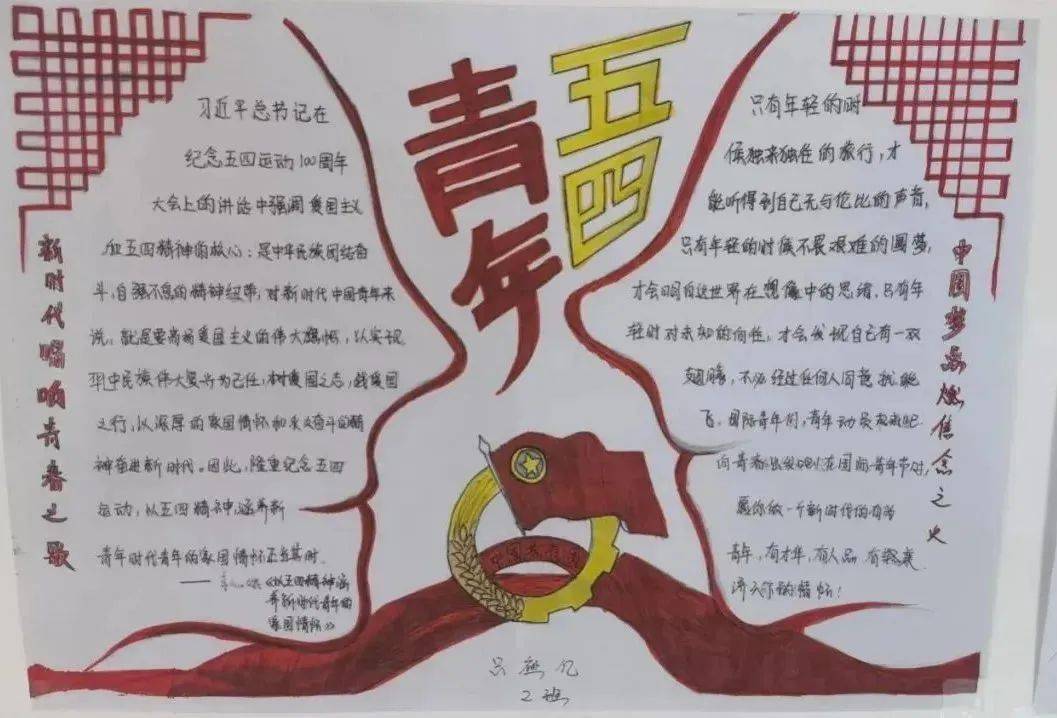 五四
青年
新时代唱响青春之歌
习近平总书记在
纪念五四运动100周年
大会上的讲话中强调爱国主义
五四精神的核心:是中华民族团结奋
斗,自强不息的精神纽带,对新时代中国青年来
说,就是要高扬爱国主义的伟大旗帜,以实现
中民族伟大复兴为己任,树爱国之志,践爱国
之行,以深厚的家国情怀和奋斗的精
神奋进新时代。因此,隆重纪念五四
运动,以五四精神涵养新
青年时代青年的家国情怀正当其时.
——《以五四精神涵
养新时代青年的
家国情怀》
只有年轻的时
候独来独往的旅行,才
能听得到自己无与伦比的声音,
只有年轻的时候不畏艰难的圆梦,
才会明白这世界在想像中的思绪,只有年
轻时对未知的向往,才会发现自己有一双
翅膀,不必经过任何人同意就能
飞,国际青年们,青年动员起来吧
向青春出发
愿你做一个新时代的有为
青年,有才华,有人品
济天
中国梦
之火
中国共青团
2班